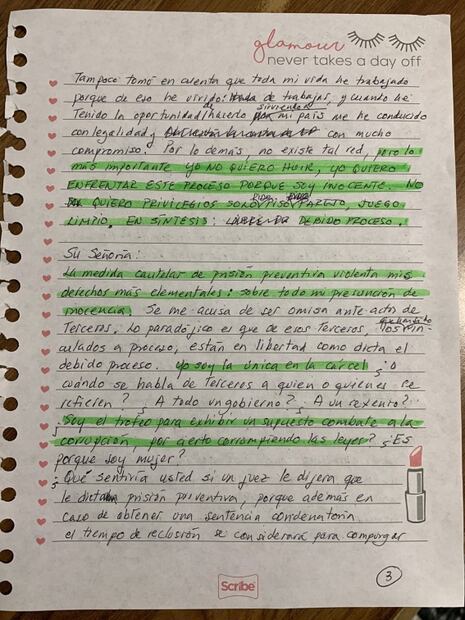 glamour
never takes a day off
Tampoco tomó en cuenta que toda mi vida he trabajado
porque de eso he vivido: de trabajar, y cuando he
Tenido la oportunidad de hacerlo sirviendo a mi país me he conducido
con legalidad y con mucho
compromiso. Por lo demás, no existe tal red, pero lo
más importante YO NO QUIERO HUIR, YO QUIERO
ENFRENTAR ESTE PROCESO PORQUE SOY INOCENTE. NO
QUIERO PRIVILEGIOS PISO PAREJO, JUEGO
LIMPIO. EN SÍNTESIS: DEBIDO PROCESO.
Su Señoría:
La medida cautelar de prisión preventiva violenta mis
derechos más elementales: sobre todo mi presunción de
inocencia. Se me acusa de ser omisa ante acto de
Terceros. Lo paradójico es que de esos Terceros, los vin
culados a proceso, están en libertad como dicta el
debido proceso. Yo soy la única en la cárcel ¿o
cuándo se habla de Terceros a quien o quienes se
refieren? ¿A todo un gobierno? ¿A un sexenio?
¿Soy el trofeo para exhibir un supuesto combate a la
corrupción, por cierto corrompiendo las leyes? ¿Es
porque soy mujer?
¿Qué sentiría usted si un juez le dijera que
le dicta prisión preventiva, porque además en
caso de obtener una sentencia condenatoria
el tiempo de reclusión se considerará para compurgar
Scribe
3